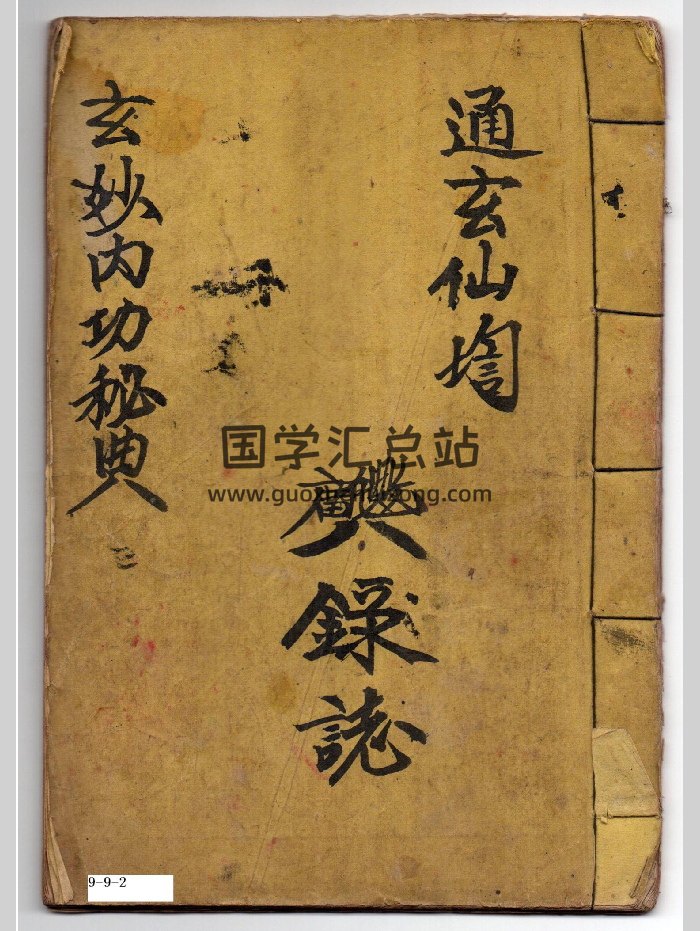 通玄仙
錄誌
玄妙内功秘典
国学汇总站
www.guoxuehuizong.com
9-9-2